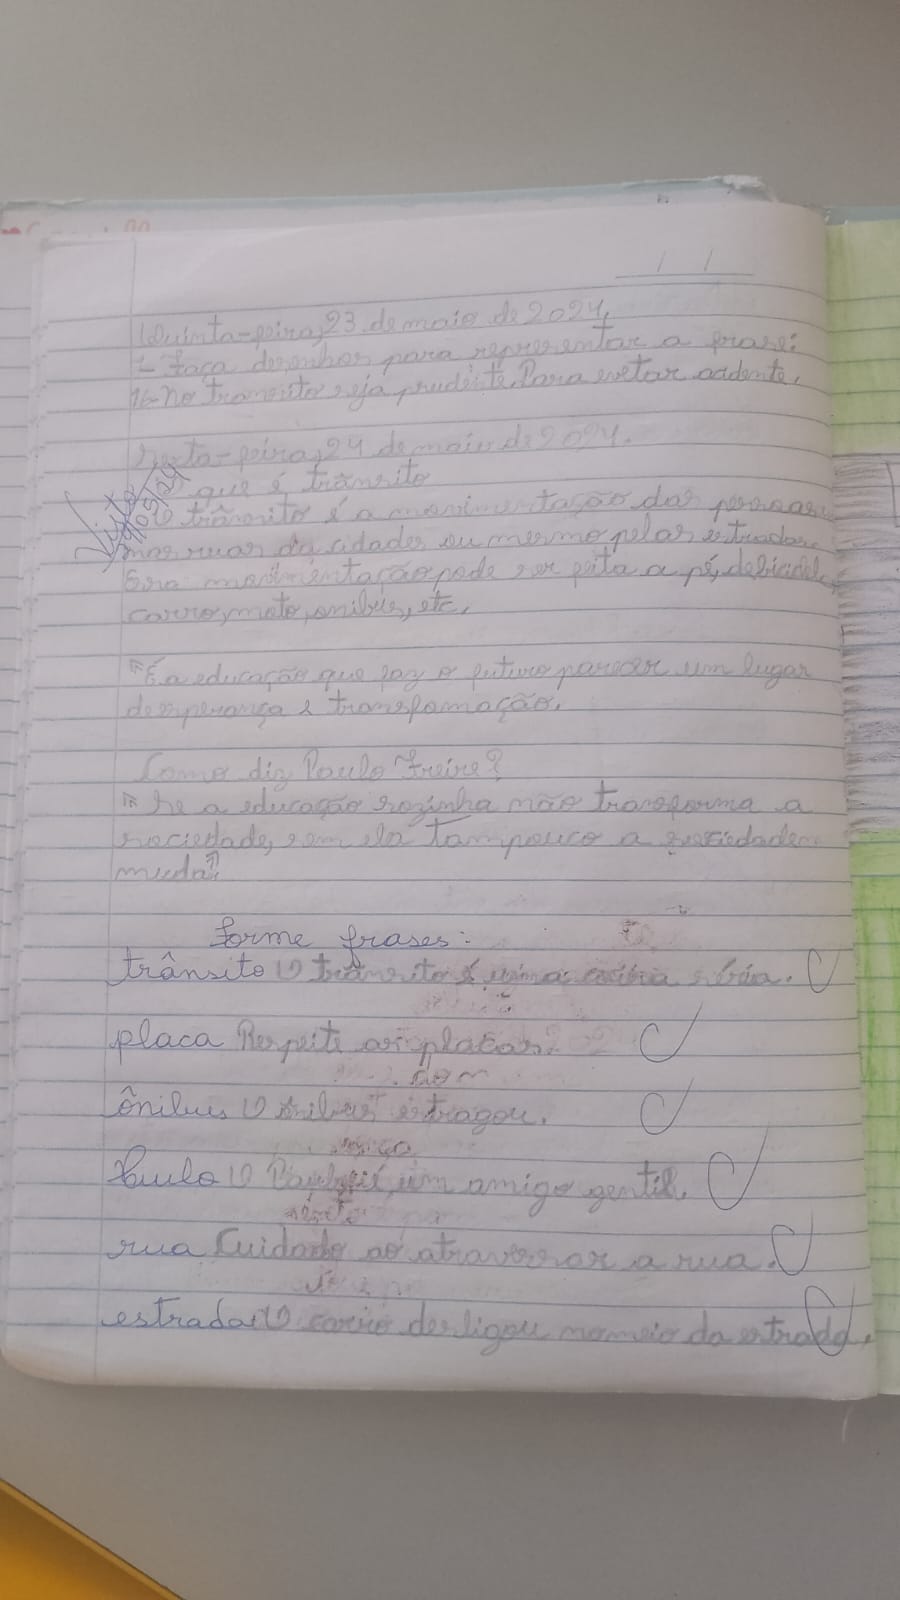 / /
Quinta-feira, 23 de maio de 2024.
1- Faça desenhos para representar a frase:
No transito seja prudente. Para evetar acidente.
Sexta-feira, 24 de maio de 2024.
Visto
24/05/24
que é trânsito
O trânsito é a movimentação das pessoas
nas ruas da cidades ou mesmo pelas estradas
Essa movimentação pode ser feita a pé, de bicicleta
carro, moto, onibus, etc.
"É a educação que faz o futuro parecer um lugar
de esperança e transfomação.
Como diz Paulo Freire?
"Se a educação sozinha não transforma a
sociedade, sem ela tampouco a sociedade
muda".
Forme frases:
trânsito O trânsito é uma coisa séria.
placa Respeite as placas.
ônibus O ônibus estragou.
Paulo O Paulo é um amigo gentil.
rua Cuidado ao atravessar a rua.
estrada O carro desligou no meio da estrada.